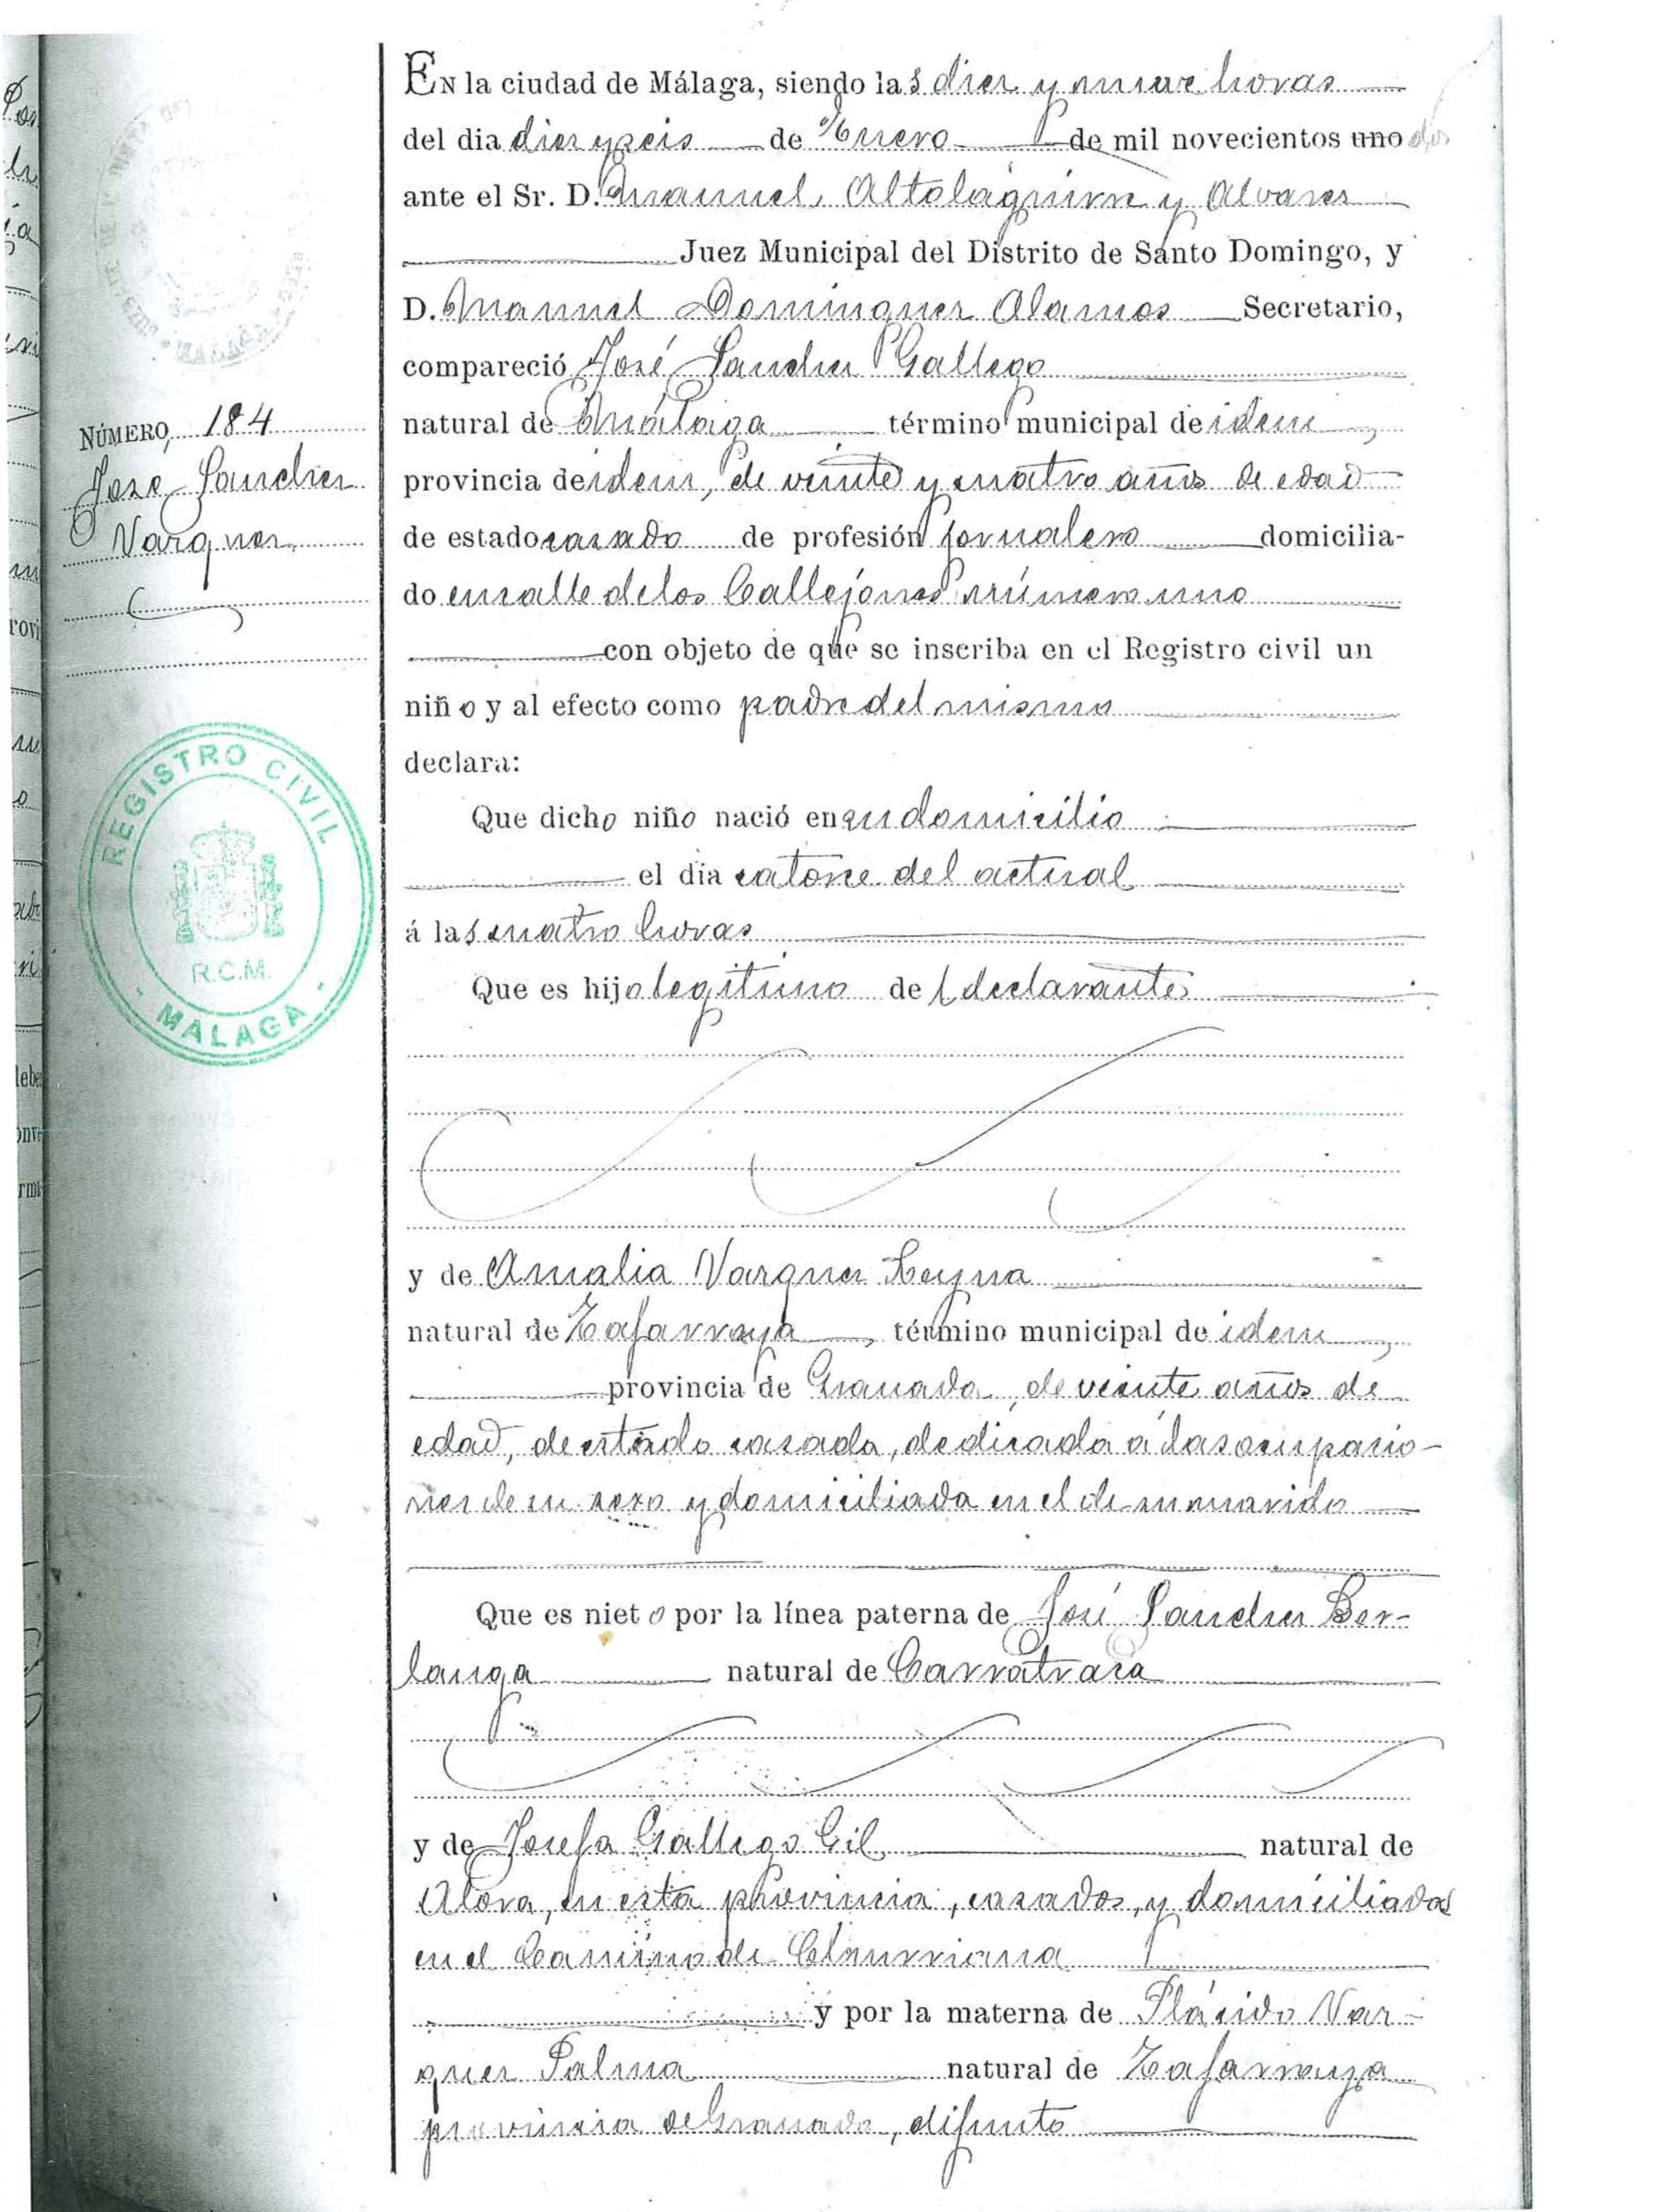 EN la ciudad de Málaga, siendo las diez y nueve horas
del dia diez y seis de Enero de mil novecientos uno dos
ante el Sr. D. Manuel Altolaguirre y Alvarez
Juez Municipal del Distrito de Santo Domingo, y
D. Manuel Dominguez Alamos Secretario,
compareció José Sanchez Gallego
natural de Málaga término municipal de idem,
provincia de idem, de veinte y cuatro años de edad
de estado casado de profesión jornalero domicilia-
do en calle de los Callejones número uno
con objeto de que se inscriba en el Registro civil un
niño y al efecto como padre del mismo
declara:
Que dicho niño nació en su domicilio
el dia catorce del actual
á las cuatro horas
Que es hijo legitimo del declarante
y de Amalia Varguez Reyna
natural de Zafarraya, término municipal de idem,
provincia de Granada, de veinte años de
edad, de estado casada, dedicada á las ocupacio-
nes de su sexo y domiciliada en el de su marido
Que es nieto por la línea paterna de José Sanchez Ber-
langa natural de Carratraca
y de Josefa Gallego Gil natural de
Alora, en esta provincia, casados, y domiciliados
en el Camino de Churriana
y por la materna de Plácido Var-
guez Palma natural de Zafarraya
provincia de Granada, difunto
NÚMERO 184
Jose Sanchez
Varguez
REGISTRO CIVIL
R.C.M.
- MALAGA -